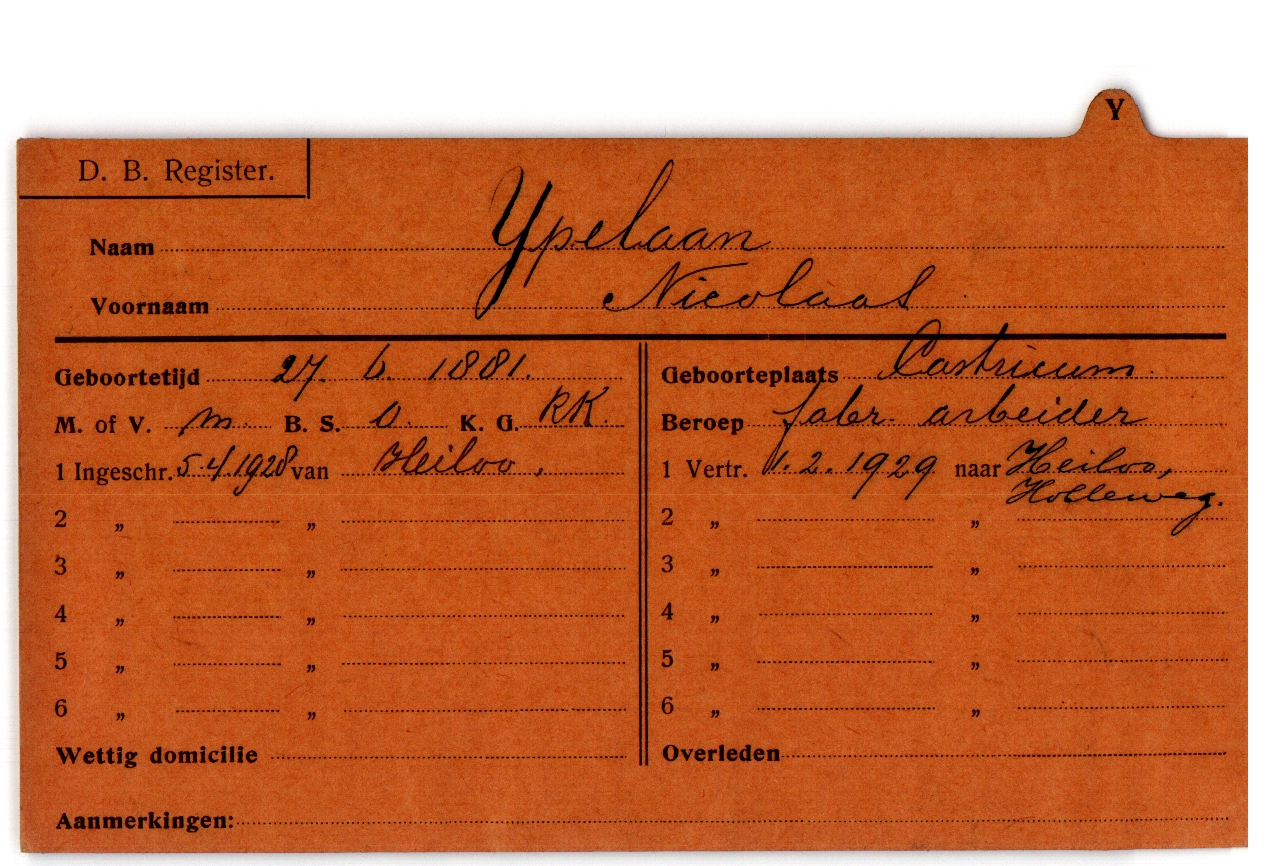 Y
D. B. Register.
Naam Ypelaan
Voornaam Nicolaas
Geboortetijd 27. 6. 1881. Geboorteplaats Castricum
M. of V. m. B. S. O. K. G. RK. Beroep fabr. arbeider
1 Ingeschr. 5.4.1928 van Heiloo, 1 Vertr. 1.2.1929 naar Heiloo,
Holleweg.
2 „ „ 2 „ „
3 „ „ 3 „ „
4 „ „ 4 „ „
5 „ „ 5 „ „
6 „ „ 6 „ „
Wettig domicilie Overleden
Aanmerkingen: